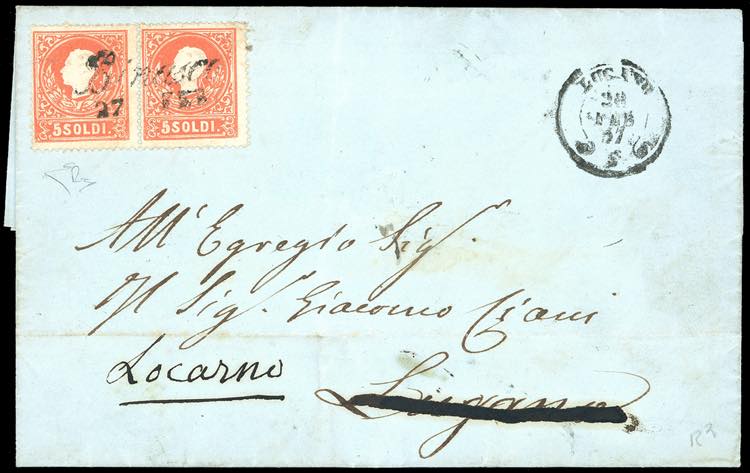 5 SOLDI. 5 SOLDI.
27 FEB
LUGANO
28
FEB
57
All' Egregio Sig.r
Il Sig.r Giacomo Ciani
Locarno
Lugano